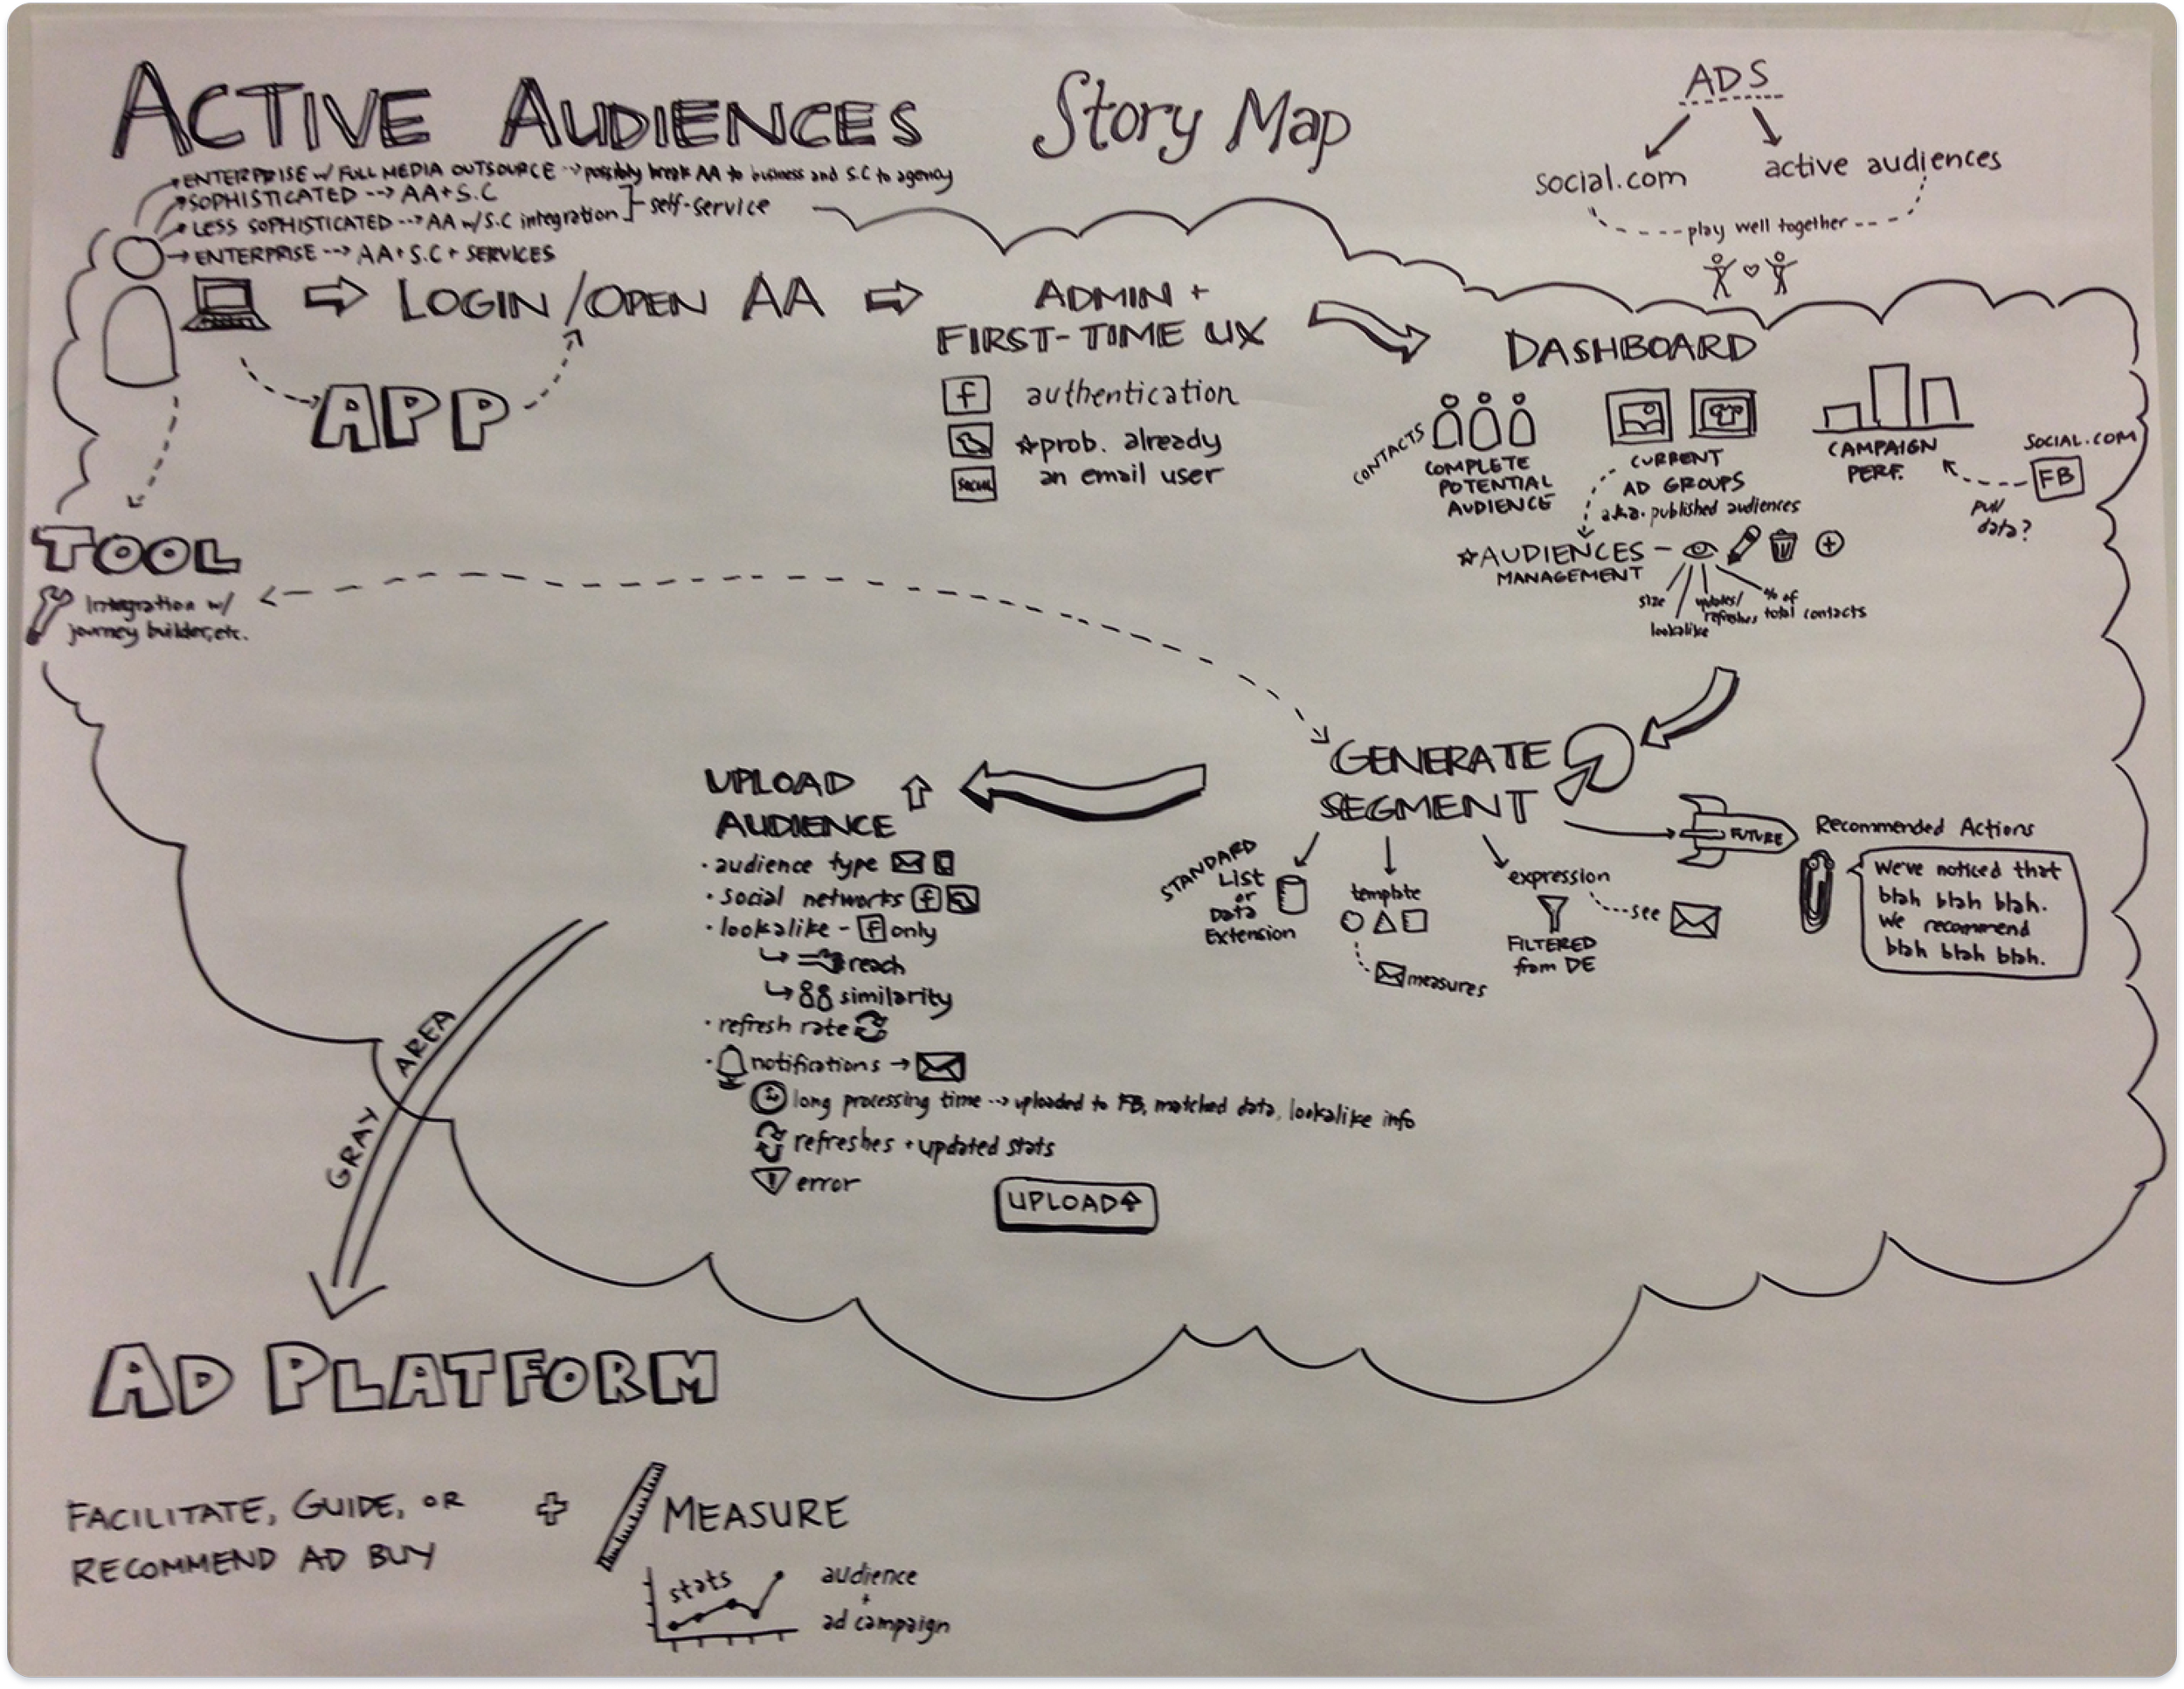 ACTIVE AUDIENCES Story Map
ADS
social.com
active audiences
play well together
ENTERPRISE w/ FULL MEDIA OUTSOURCE --> possibly break AA to business and S.C to agency
SOPHISTICATED --> AA+S.C
LESS SOPHISTICATED --> AA w/ S.C integration
self-service
ENTERPRISE --> AA+S.C + SERVICES
LOGIN/OPEN AA
APP
ADMIN +
FIRST-TIME UX
f authentication
☆prob. already
an email user
SOCIAL
DASHBOARD
CONTACTS
COMPLETE
POTENTIAL
AUDIENCE
CURRENT
AD GROUPS
a.k.a. published audiences
CAMPAIGN
PERF.
SOCIAL.COM
FB
pull
data?
☆AUDIENCES
MANAGEMENT
size
lookalike
updates/
refreshes
% of
total contacts
TOOL
Integration w/
journey builder, etc.
GENERATE
SEGMENT
STANDARD
List
or
Data
Extension
template
measures
expression
see
FILTERED
from DE
FUTURE
Recommended Actions
We've noticed that
blah blah blah.
We recommend
blah blah blah.
UPLOAD
AUDIENCE
· audience type
· social networks f
· lookalike - f only
reach
similarity
· refresh rate
· notifications →
long processing time --> uploaded to FB, matched data, lookalike info
refreshes + updated stats
! error
UPLOAD
GRAY AREA
AD PLATFORM
FACILITATE, GUIDE, OR
RECOMMEND AD BUY
+
MEASURE
stats
audience
+
ad campaign